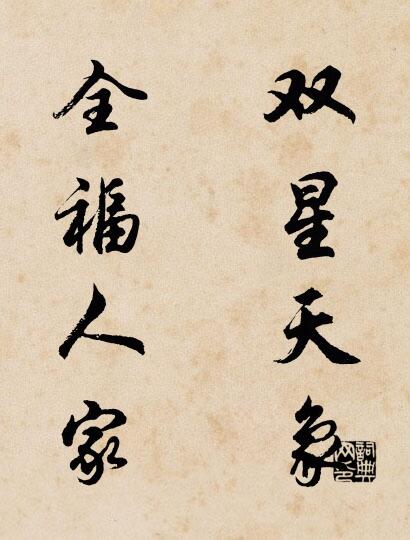 双星天象
全福人家
詞典
网印